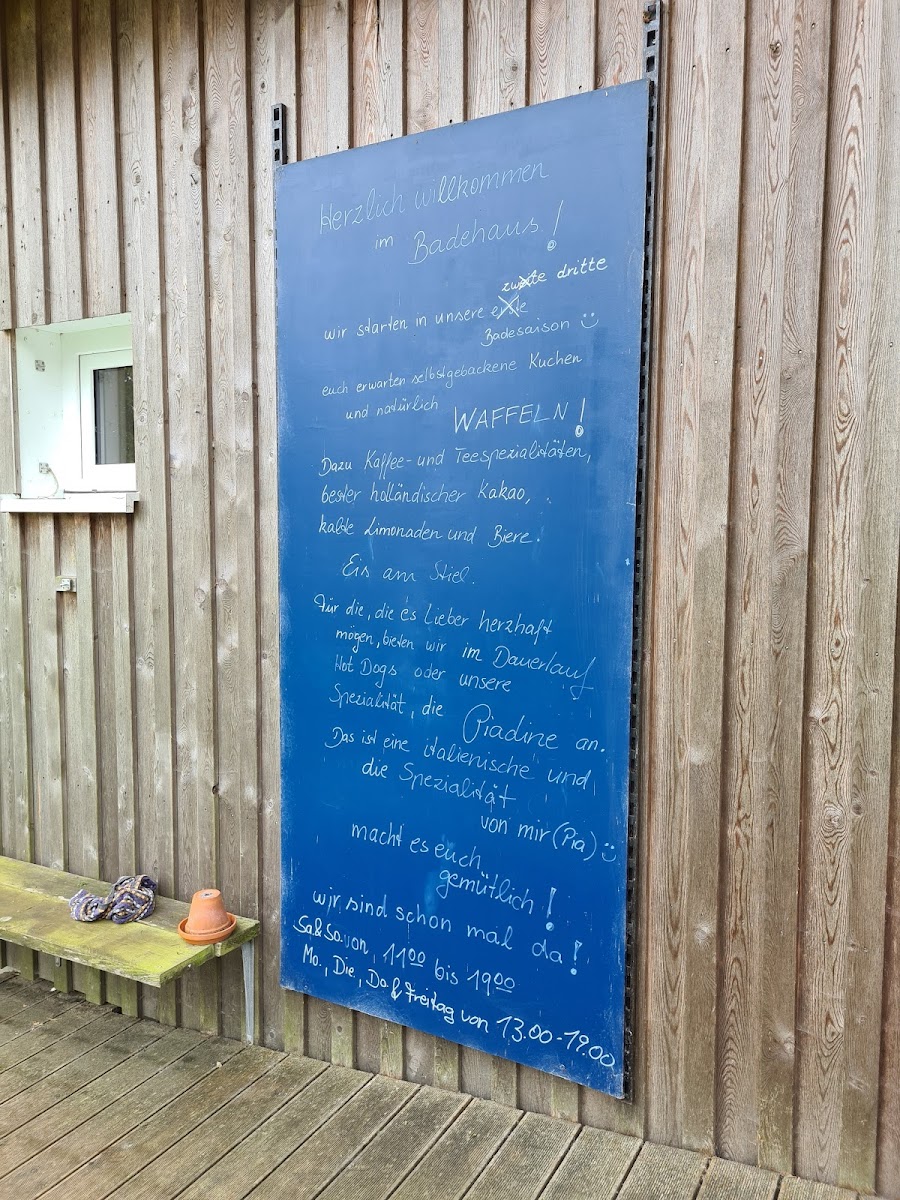 Herzlich willkommen
im Badehaus!
zweite dritte
wir starten in unsere erste
Badesaison
euch erwarten selbstgebackene Kuchen
und natürlich
WAFFELN!
Dazu Kaffee- und Teespezialitäten,
bester holländischer Kakao,
kalte Limonaden und Biere.
Eis am Stiel.
Für die, die es Lieber herzhaft
mögen, bieten wir im Dauerlauf
Hot Dogs oder unsere
Spezialität, die Piadine an.
Das ist eine italienische und
die Spezialität
von mir (Pia)
macht es euch
gemütlich!
wir sind schon mal da!
Sa & So. von 11:00 bis 19:00
Mo., Die., Do & Freitag von 13.00-19.00